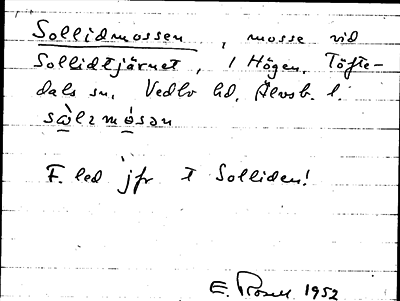 Sollidmossen, mosse vid
Sollidtjärnet, i Högen, Töfte-
dals sn. Vedbo hd, Älvsb. l.
F. led jfr t Solliden!
E. 1952